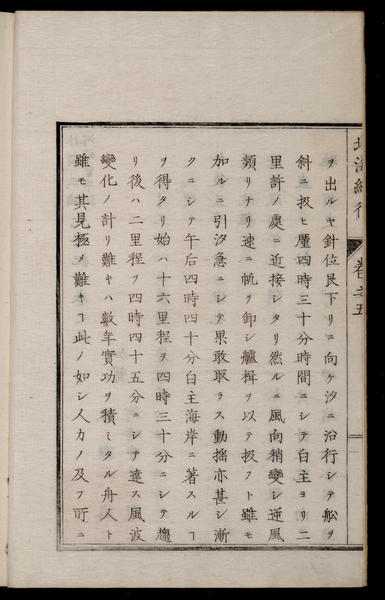 北海紀行
卷之五
ヲ出ルヤ針位艮下リニ向ケ汐ニ沿行シテ舩ヲ
斜ニ扱ヒ壓四時三十分時間ニシテ白主ヨリ二
里許ノ處ニ近接シタリ然ルニ風向稍變シ逆風
頻リナリ速ニ帆ヲ卸シ艫楫ヲ以テ扱フト雖モ
加ルニ引汐急ニシテ果敢取ラス動揺亦甚シ漸
クニシテ午后四時四十分白主海岸ニ著スルヿ
ヲ得タリ始ハ十六里程ヲ四時三十分ニシテ趨
リ後ハ二里程ヲ四時四十五分ニシテ達ス風波
變化ノ計リ難キハ數年實功ヲ積ミタル舟人ト
雖モ其見極メ難キヿ此ノ如シ人力ノ及フ所ニ